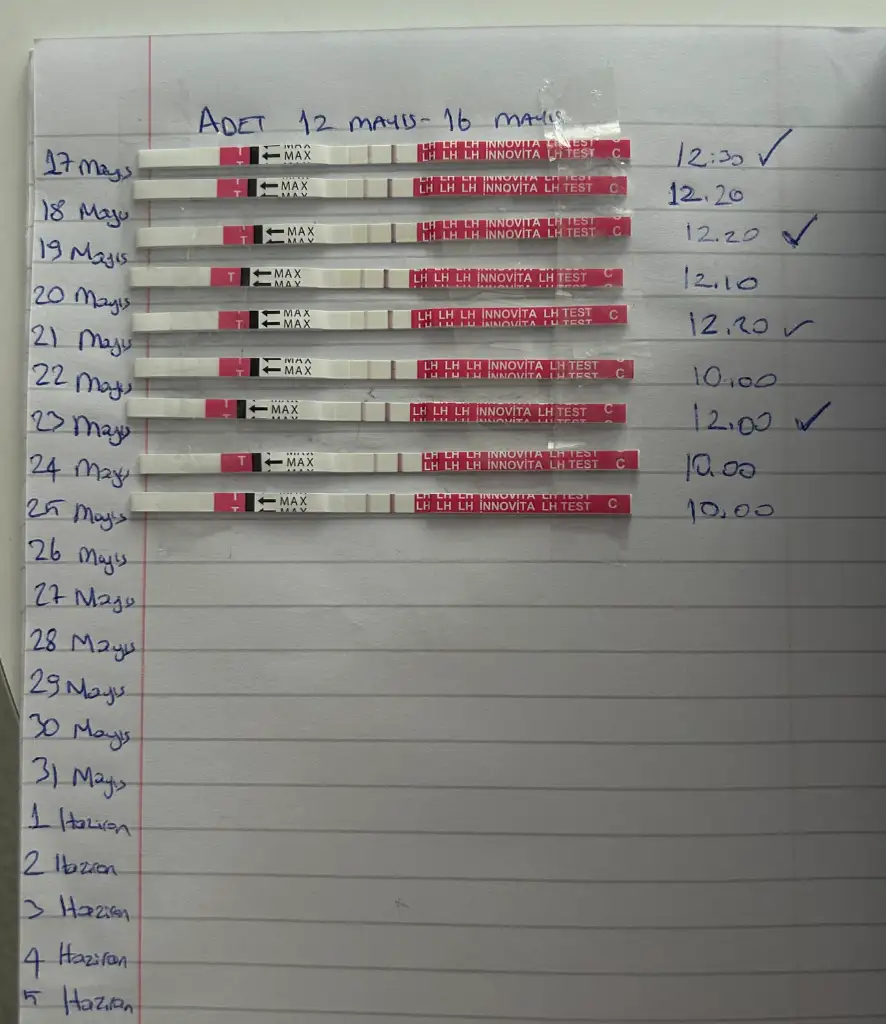 ADET 12 MAYIS - 16 MAYIS
17 Mayıs T T MAX MAX LH LH LH İNNOVİTA LH TEST LH LH LH İNNOVİTA LH TEST C 12:30 ✓
18 Mayıs T T MAX MAX LH LH LH İNNOVİTA LH TEST LH LH LH İNNOVİTA LH TEST C 12.20
19 Mayıs T T MAX MAX LH LH LH İNNOVİTA LH TEST LH LH LH İNNOVİTA LH TEST C 12.20 ✓
20 Mayıs T MAX MAX LH LH LH İNNOVİTA LH TEST LH LH LH İNNOVİTA LH TEST C C 12.10
21 Mayıs T T MAX MAX LH LH LH İNNOVİTA LH TEST LH LH LH İNNOVİTA LH TEST C 12.20 ✓
22 Mayıs T T MAX MAX LH LH LH İNNOVİTA LH TEST LH LH LH İNNOVİTA LH TEST C 10.00
23 Mayıs T MAX LH LH LH İNNOVİTA LH TEST C 12.00 ✓
24 Mayıs T MAX MAX LH LH LH İNNOVİTA LH TEST LH LH LH İNNOVİTA LH TEST C 10.00
25 Mayıs T T MAX MAX LH LH LH İNNOVİTA LH TEST LH LH LH İNNOVİTA LH TEST C 10.00
26 Mayıs
27 Mayıs
28 Mayıs
29 Mayıs
30 Mayıs
31 Mayıs
1 Haziran
2 Haziran
3 Haziran
4 Haziran
5 Haziran